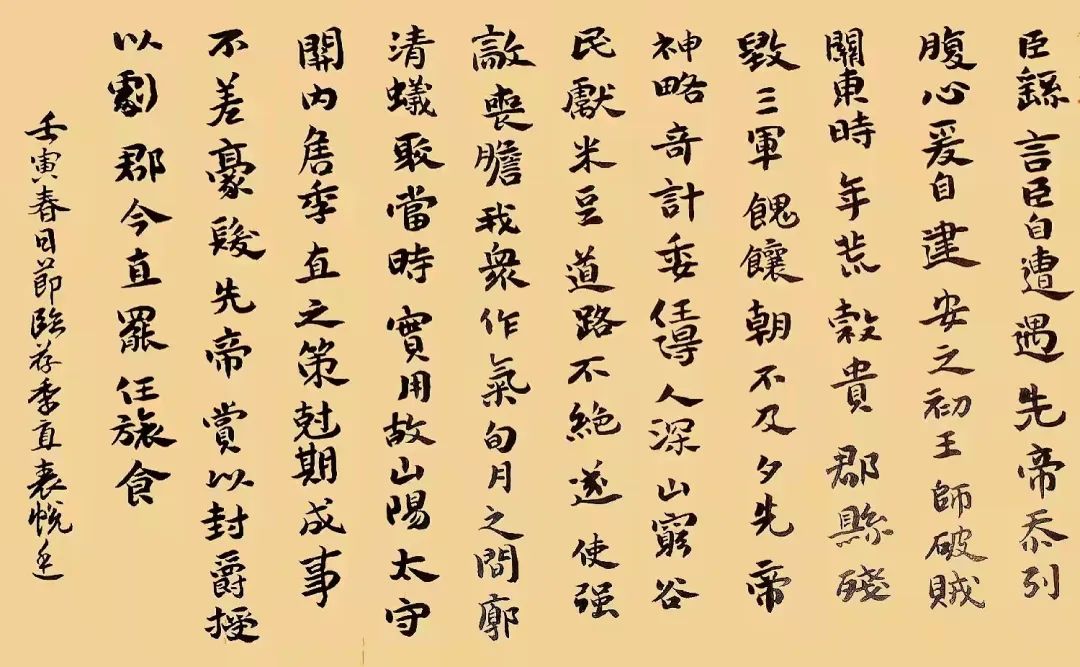 臣繇言臣自遭遇先帝忝列
腹心爰自建安之初王師破賊
關東時年荒穀貴郡縣殘
毀三軍餽饟朝不及夕先帝
神略奇計委任得人深山窮谷
民獻米豆道路不絕遂使强
敵喪膽我衆作氣旬月之間廓
清蟻聚當時實用故山陽太守
關內侯季直之策尅期成事
不差豪髮先帝賞以封爵授
以劇郡今直罷任旅食
壬寅春日節臨荐季直表悅